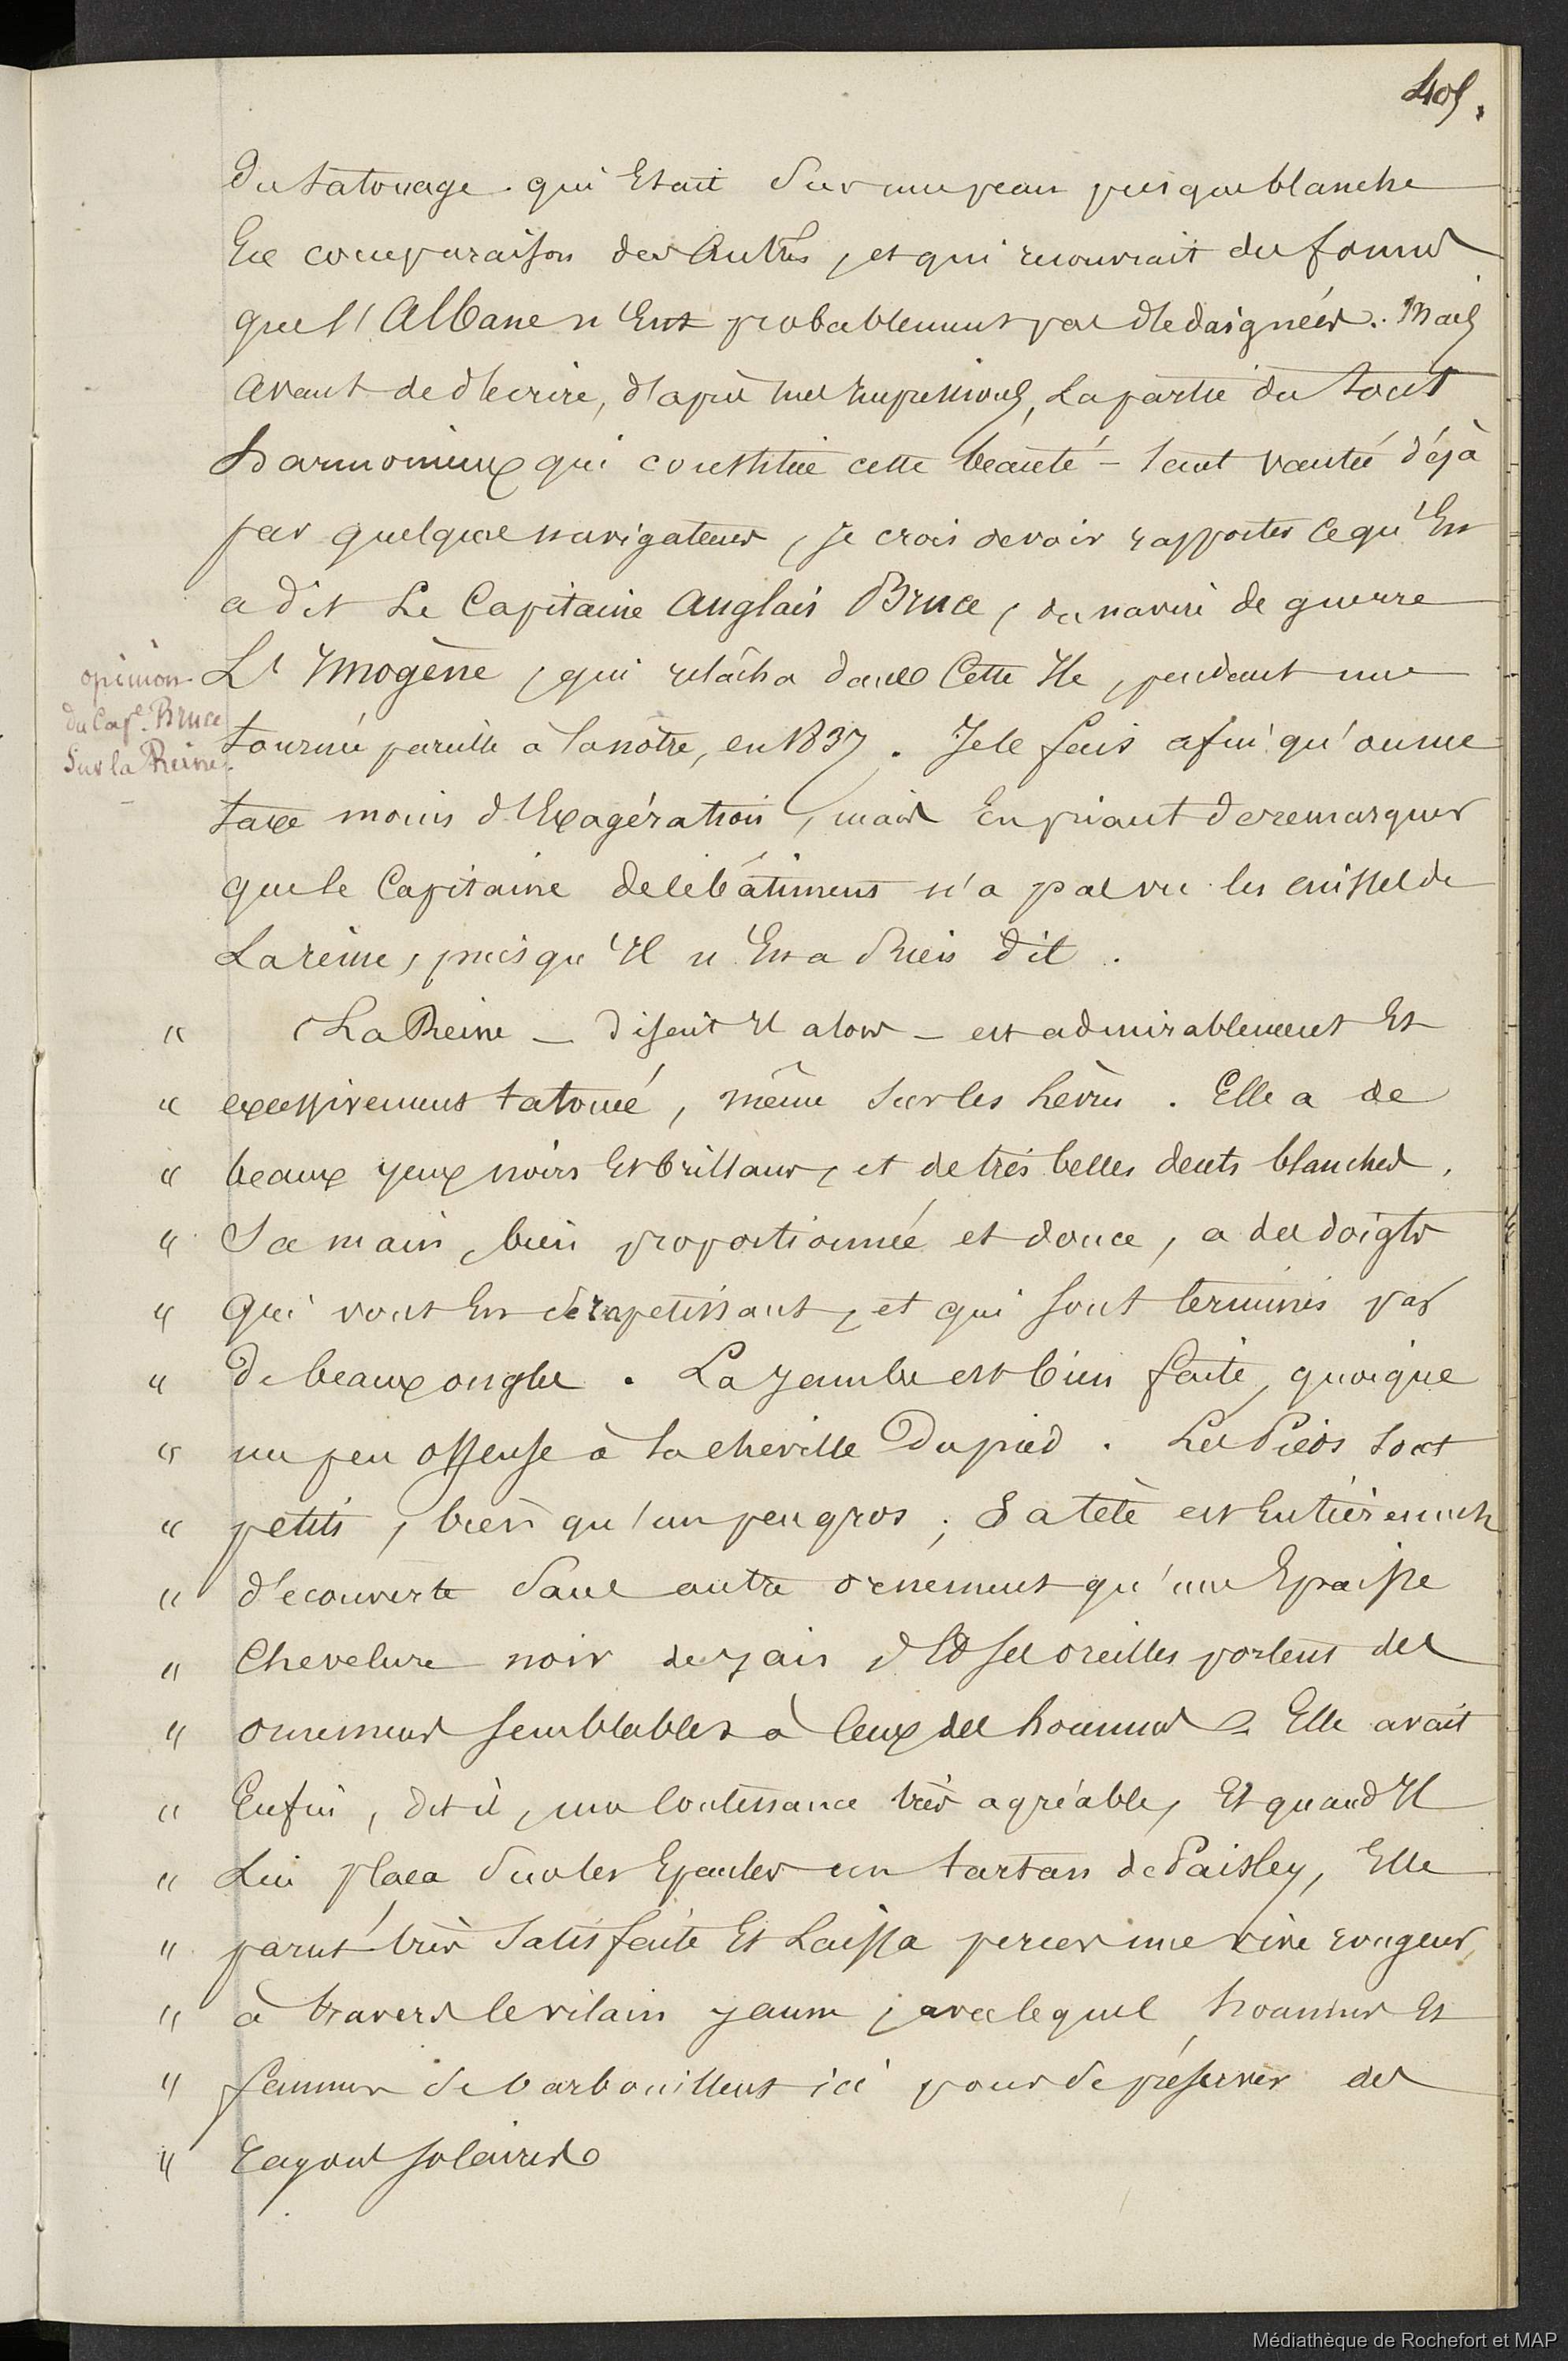 405.
du tatouage. qui Etait Sur une peau presque blanche
En comparaison des Autres, et qui recouvrait des formes
que l'Albane n'Eut probablement pas dédaignées. Mais
Avant de décrire, d'après mes Impressions, La partie du tout
Harmonieux qui constitue cette beauté - tant vantée déjà
par quelques navigateurs, je crois devoir rapporter ce qu'En
a dit Le Capitaine Anglais Bruce, du navire de guerre
L'Ymogène, qui relâcha dans Cette Ile, pendant une
opinion
du Cape. Bruce
Sur la Reine.
tournée pareille à la nôtre, en 1837. Je le fais afin qu'on me
taxe moins d'Exagération, mais En priant de remarquer
que le Capitaine de ce bâtiment n'a pas vu les cuisses de
La reine, puisqu'Il n'En a Rien dit.
" La Reine - disait Il alors - est admirablement Et
" excessivement tatouée, même sur les Lèvres. Elle a de
" beaux yeux noirs Et brillans, et de très belles dents blanches.
" Sa main, bien proportionnée et douce, a des doigts
" Qui vont En se rapetissant, et qui sont terminés par
" De beaux ongles. La jambe est bien faite, quoique
" un peu osseuse à la cheville Du pied. Les Pieds sont
" petits, bien qu'un peu gros; Sa tête est Entièrement
" découverte Sans autre ornement qu'une Epaisse
" Chevelure noir de jais Et ses oreilles portent des
" ornemens semblables à Ceux des hommes. Elle avait
" Enfin, dit il, une Contenance très agréable, Et quand Il
" Lui plaça Sur les Epaules un tartan de Paisley, Elle
" parut très Satisfaite Et Laissa percer une vive rougeur,
" à travers le vilain jaune, avec lequel hommes Et
" femmes Se barbouillent ici pour Se préserver des
" Rayons solaires
Médiathèque de Rochefort et MAP